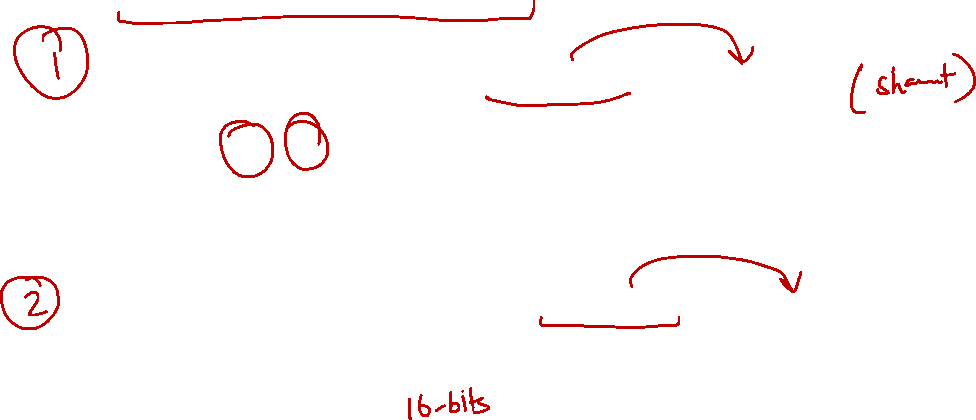 1
(shamt)
2
16-bits